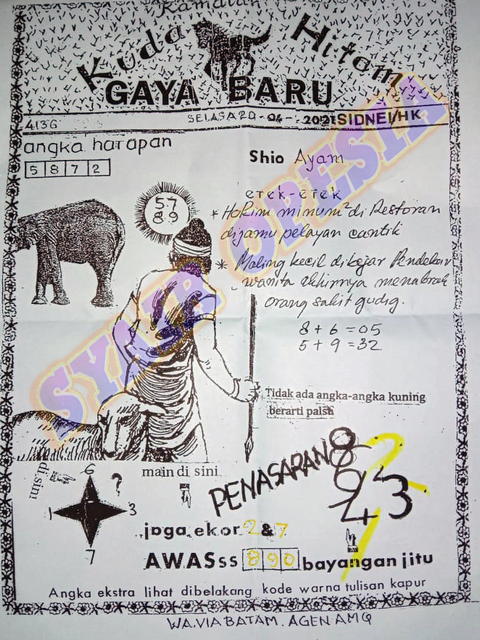 Ramalan
Kuda Hitam
GAYA BARU
4136
SELASA 20 - 04 - 2021 SIDNEI/HK
angka harapan
5 8 7 2
Shio Ayam
57
89
erek-erek
* Hakim minum di Restoran
dijamu pelayan cantik
* Maling kecil dikejar Pendekar
wanita akhirnya menabrak
orang sakit gudig.
8 + 6 = 05
5 + 9 = 32
SYAIR OPESIA
Tidak ada angka-angka kuning
berarti palsu
disini
6
?
1 3
7
main di sini
PENASARAN
8
9 2
4 3
7
jaga ekor 2 & 7
AWASss 8 9 0 bayangan jitu
Angka ekstra lihat dibelakang kode warna tulisan kapur
WA.VIA BATAM. AGEN AMQ